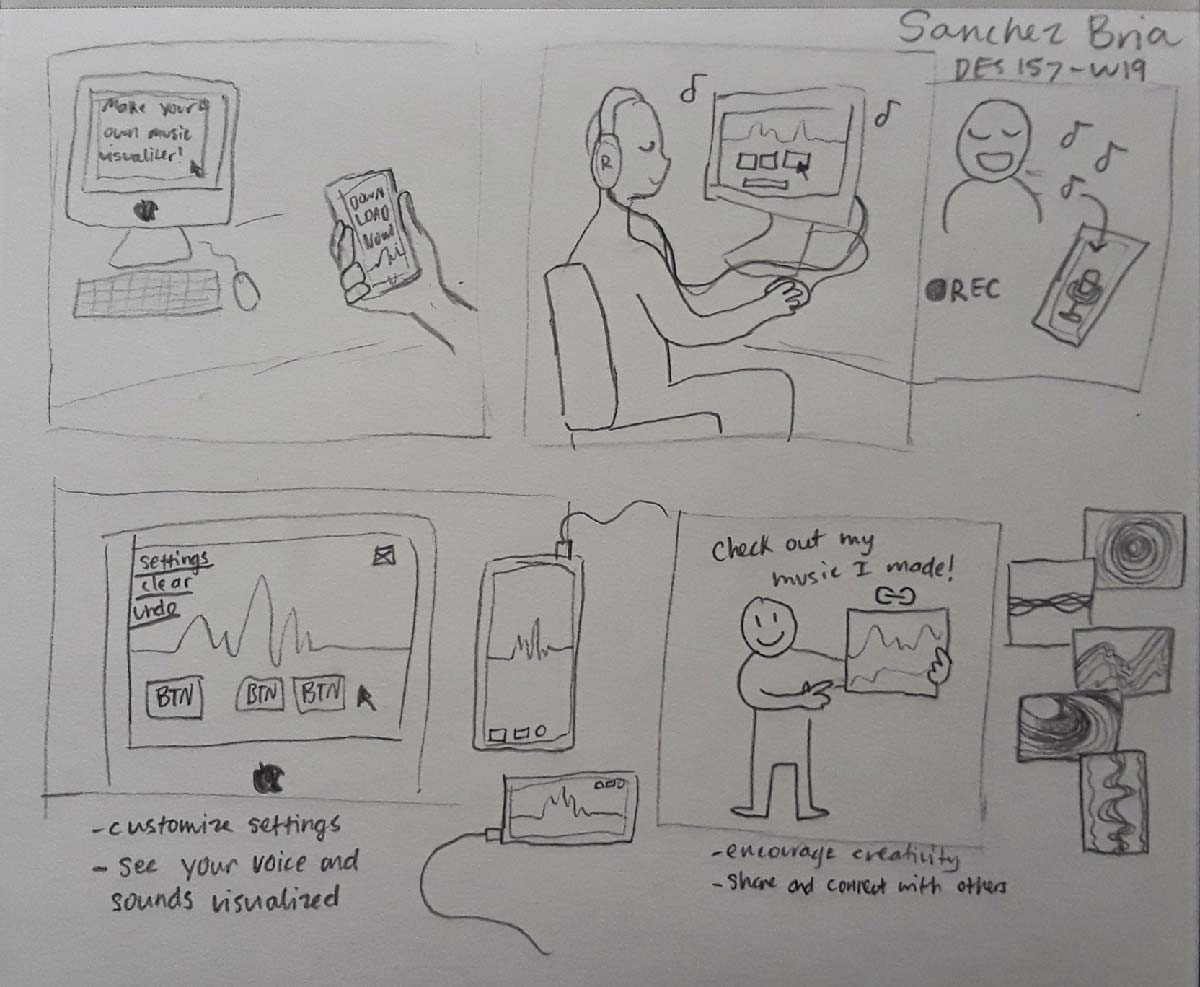 Sanchez Bria
DES 157-W19
Make your
own music
visualizer!
DOWN
LOAD
NOW!
R
REC
settings
clear
undo
BTN BTN BTN
-customize settings
- see your voice and
sounds visualized
Check out my
music I made!
-encourage creativity
-share and connect with others